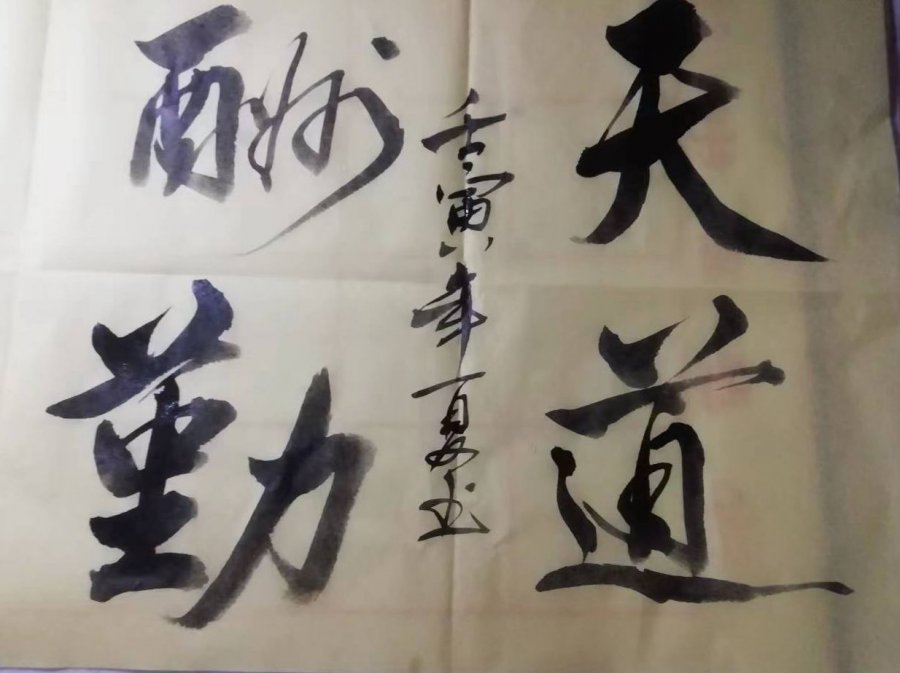 天道
酬勤
壬寅年夏